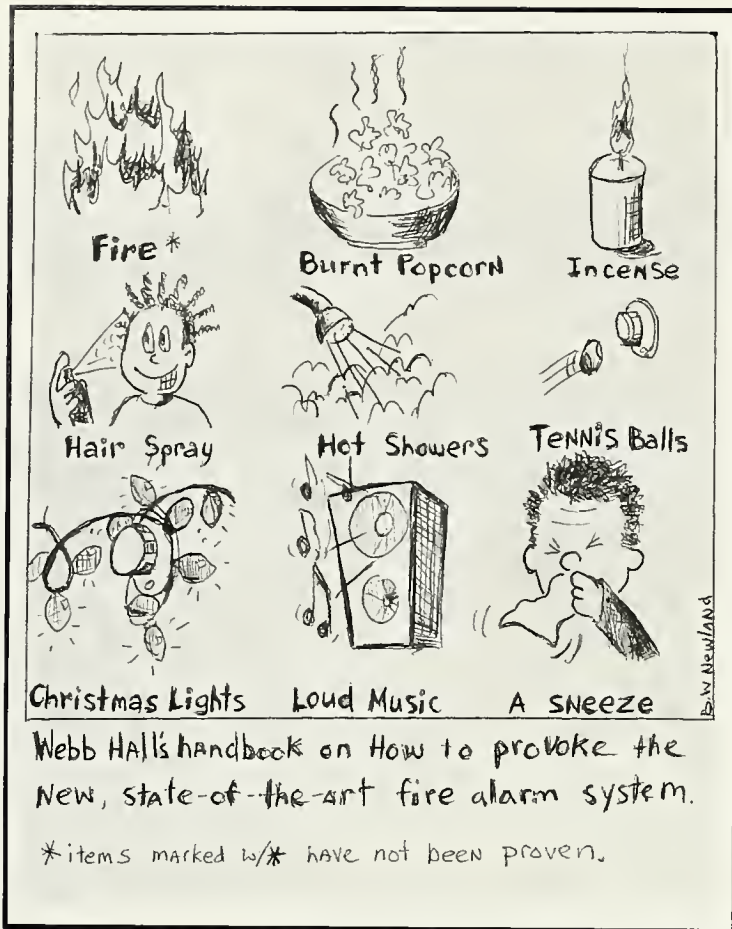 Fire *
Burnt Popcorn
Incense
Hair Spray
Hot Showers
Tennis Balls
Christmas Lights
Loud Music
A Sneeze
B.W Newland
Webb Hall's handbook on How to provoke the
New, state-of-the-art fire alarm system.
*items marked w/* have not been proven.